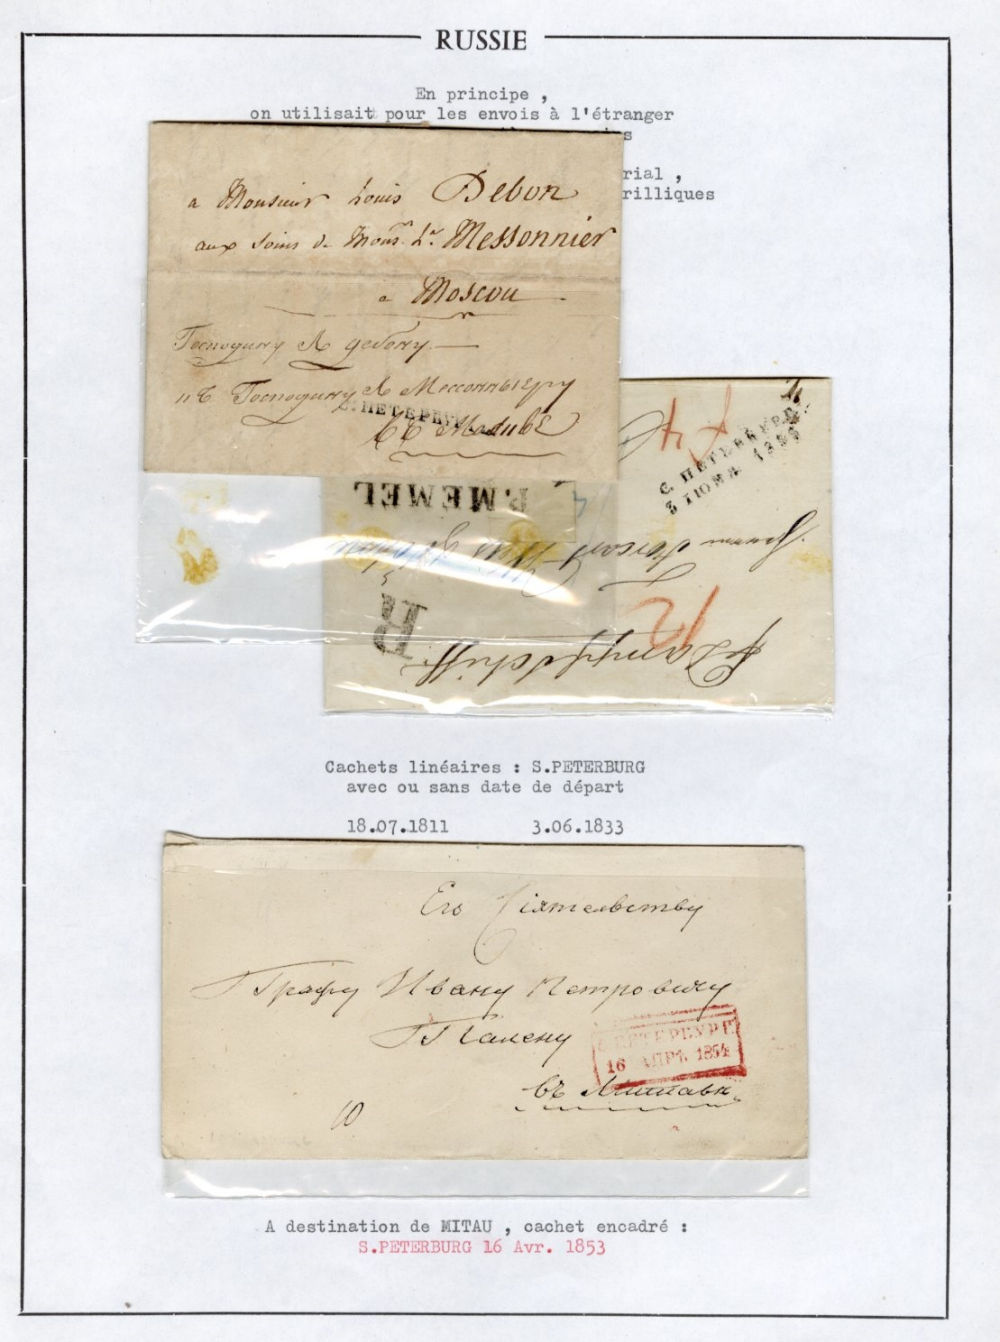 RUSSIE
En principe ,
on utilisait pour les envois à l'étranger
s
rial ,
rilliques
a Monsieur Louis Debon
aux soins de Monsr. Lr. Messonnier
a Moscou
Господину Л Дебону
Господину Л Мессонньеру
С. ПЕТЕРБУРГ
С. ПЕТЕРБУРГ
3 ІЮНЯ 1833
P. MEMEL
R
12
pr Dampfschiff
Cachets linéaires : S.PETERBURG
avec ou sans date de départ
18.07.1811 3.06.1833
Его Сіятельству
Графу Ивану Петровичу
Палену
С. ПЕТЕРБУРГ
16 АПР. 1854
въ Митавѣ
10
A destination de MITAU , cachet encadré :
S.PETERBURG 16 Avr. 1853